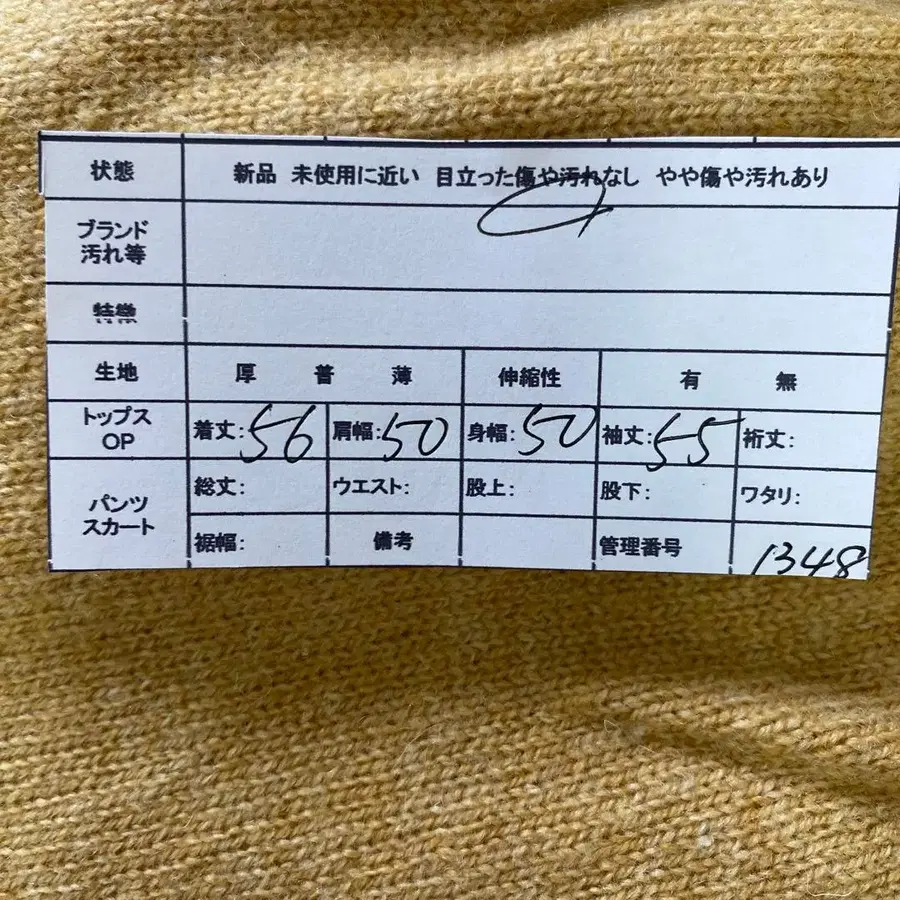 状態 新品 未使用に近い 目立った傷や汚れなし やや傷や汚れあり
ブランド
汚れ等
特徴
生地 厚 普 薄 伸縮性 有 無
トップス
OP 着丈:56 肩幅:50 身幅:50 袖丈:55 裄丈:
パンツ
スカート 総丈: ウエスト: 股上: 股下: ワタリ:
裾幅: 備考 管理番号 1348